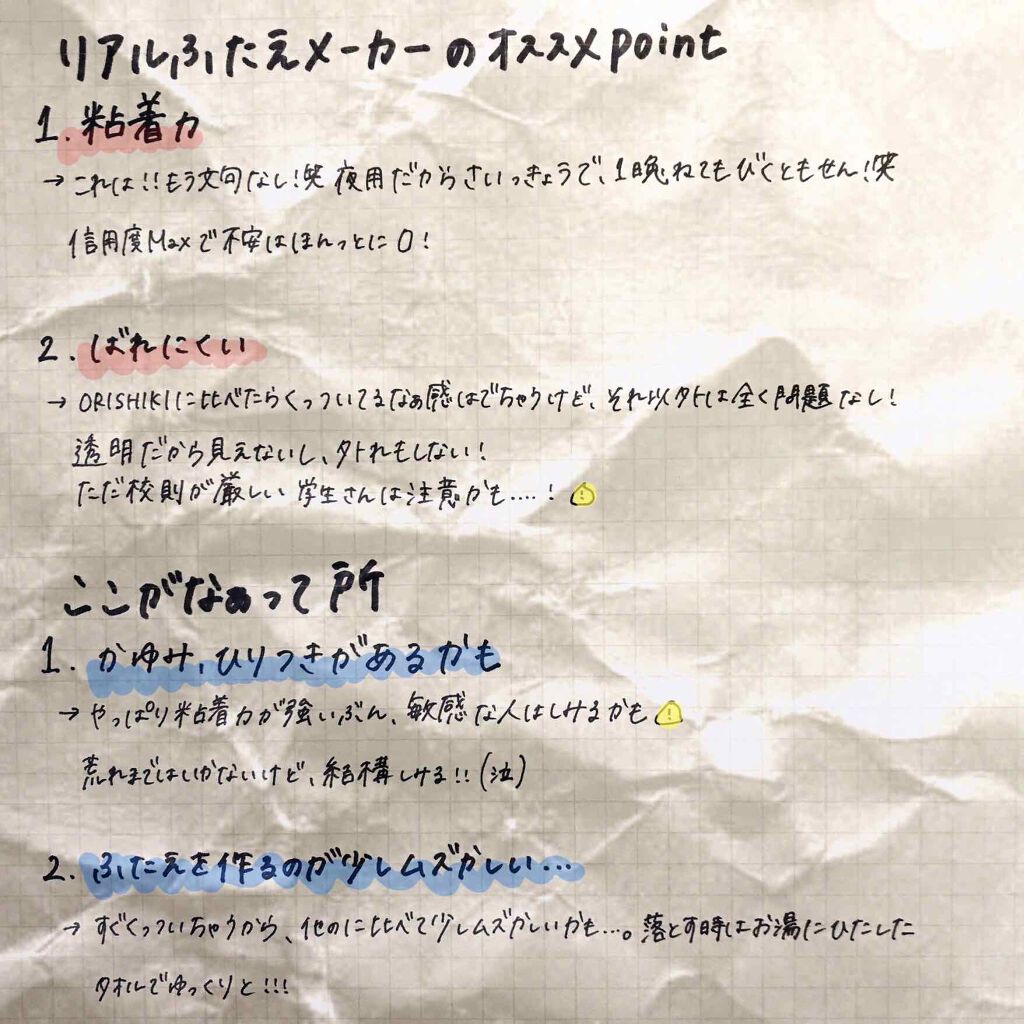 リアルふたえメーカーのオススメpoint
1. 粘着力
→ これは!!もう文句なし!笑 夜用だからさいっきょうで、1晩ねてもびくともせん!笑
信用度Maxで不安はほんっとに0!
2. ばれにくい
→ ORISHIKIに比べたらくっついてるなぁ感はでちゃうけど、それ以外は全く問題なし!
透明だから見えないし、外れもしない!
ただ校則が厳しい学生さんは注意かも....!
ここがなぁって所
1. かゆみ、ひりつきがあるかも
→ やっぱり粘着力が強いぶん、敏感な人はしみるかも
荒れまではいかないけど、結構しみる!!(泣)
2. ふたえを作るのが少しムズかしい...
→ すぐくっついちゃうから、他のに比べて少しムズかしいかも...。落とす時はお湯にひたした
タオルでゆっくりと!!!